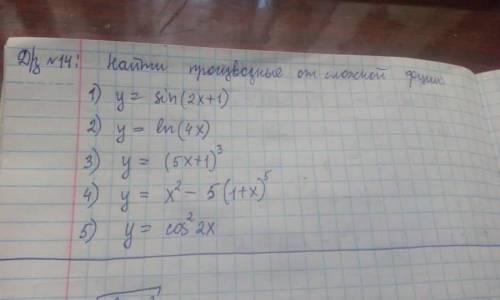 Д/з №14: Найти производные от сложной функции
1) y = sin(2x+1)
2) y = ln(4x)
3) y = (5x+1)³
4) y = x² - 5(1+x)⁵
5) y = cos² 2x